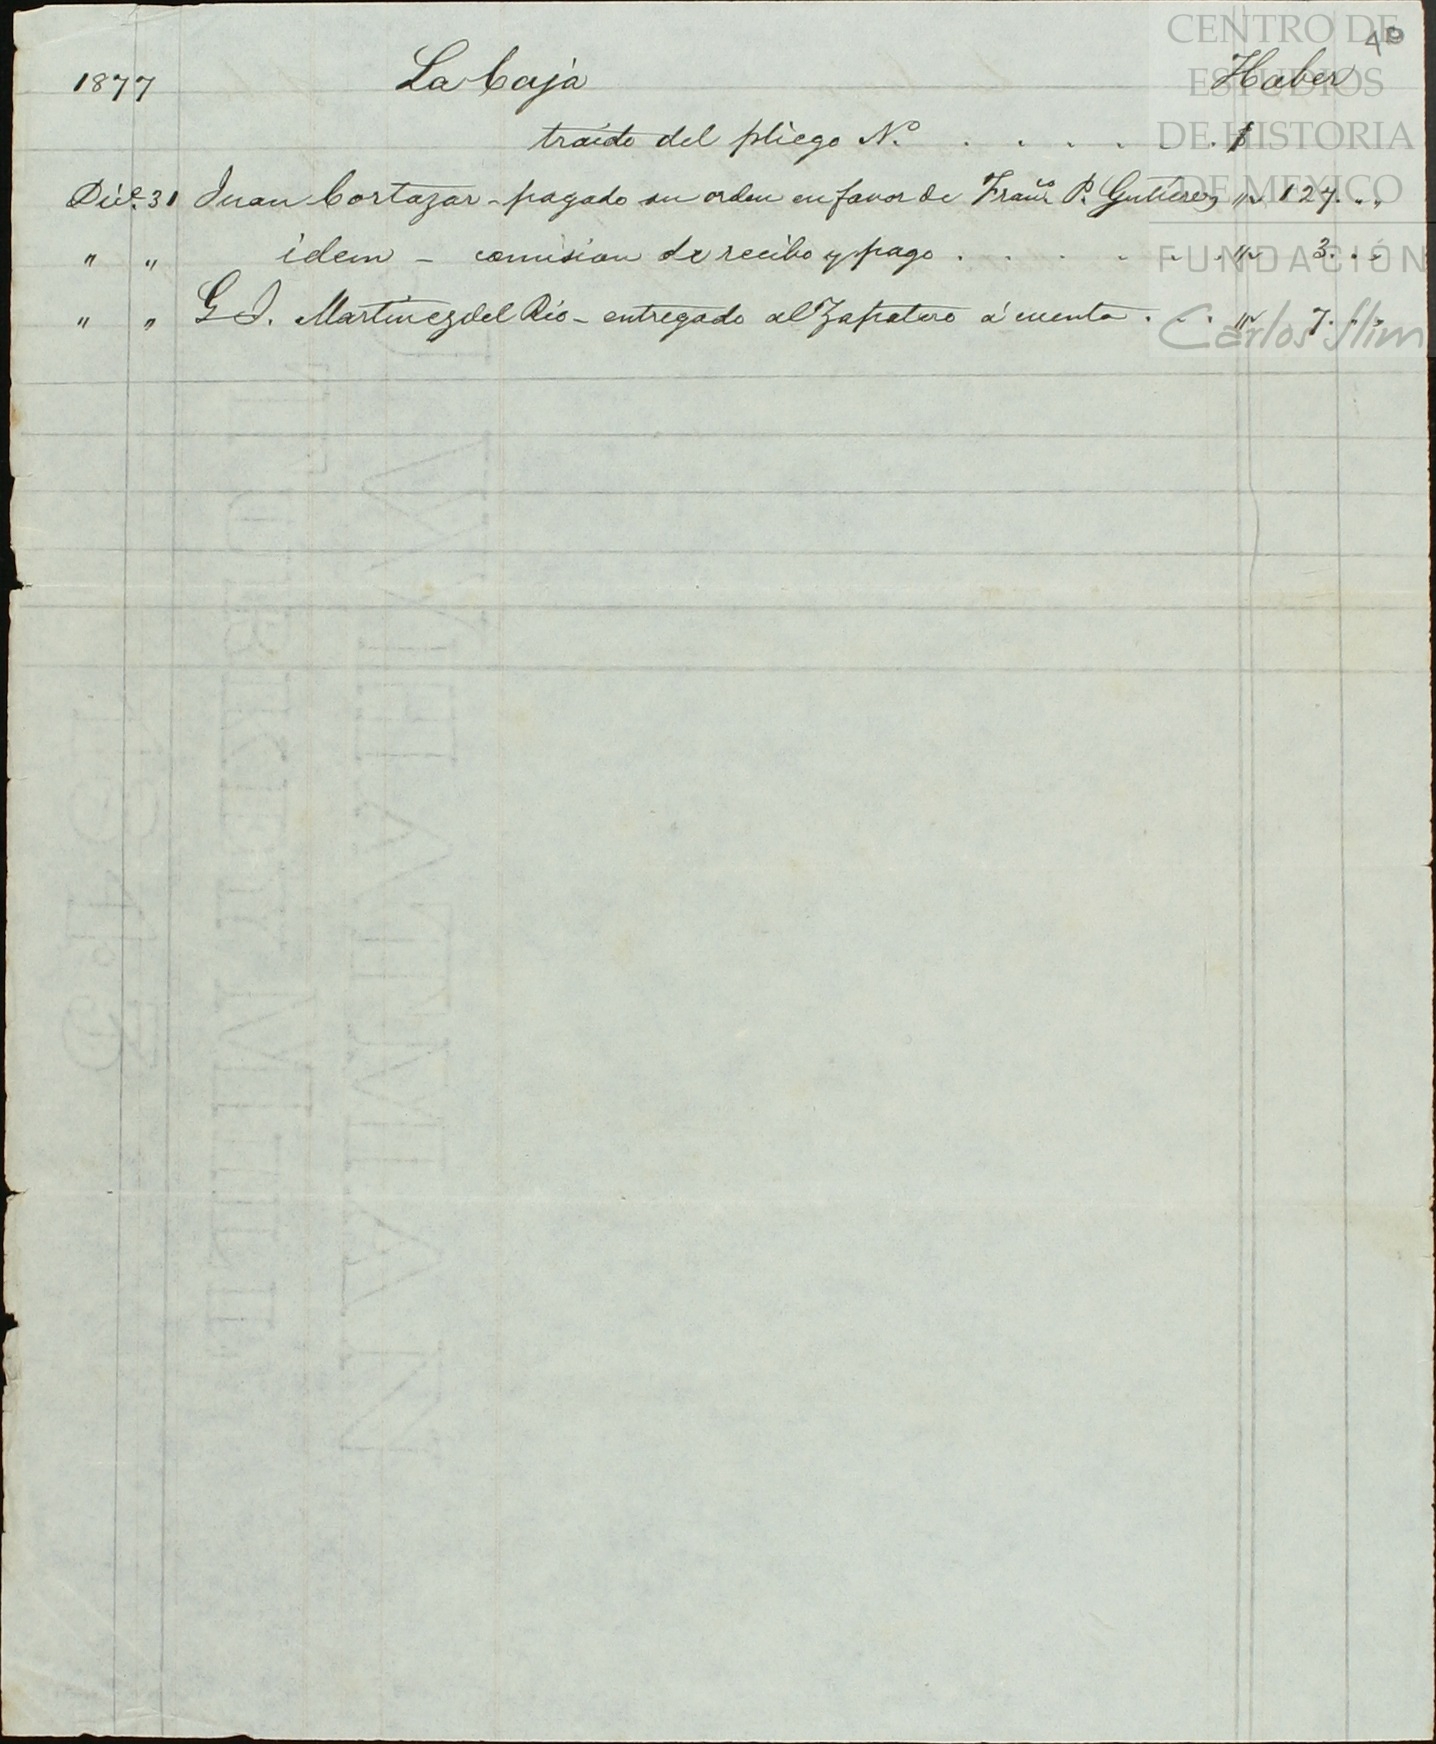 CENTRO DE
ESTUDIOS
DE HISTORIA
DE MEXICO
FUNDACIÓN
Carlos Slim
40
1877 La Caja Haber
traido del pliego No. . . . . . . $
Dic.e 31 Juan Cortazar - pagado su orden en favor de Fran.co P. Gutierez " 127. . "
" " idem - comision de recibo y pago . . . . . . . " 3. . "
" " G I. Martinez del Rio - entregado al Zapatero á cuenta . . . " 7. " "